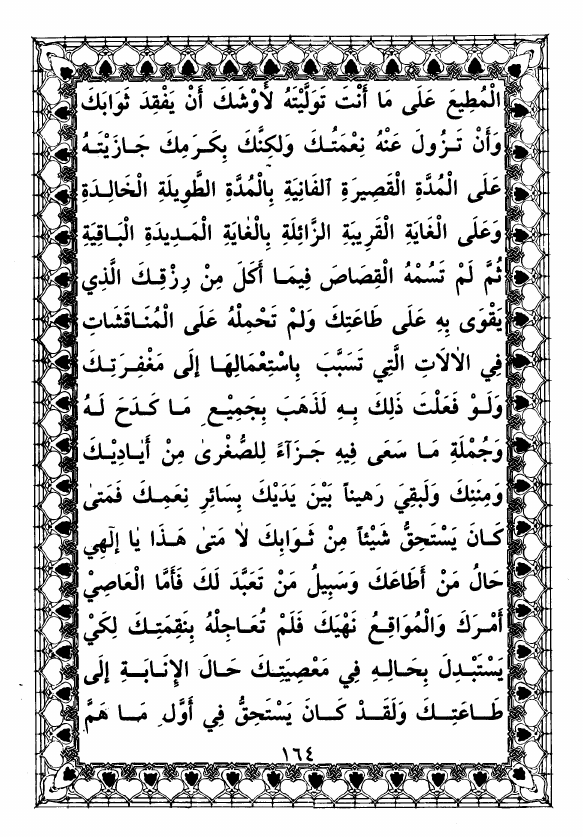 الْمُطِيعَ عَلَى مَا أَنْتَ تَوَلَّيْتَهُ لَأَوْشَكَ أَنْ يَفْقِدَ ثَوَابَكَ
وَأَنْ تَزُولَ عَنْهُ نِعْمَتُكَ وَلَكِنَّكَ بِكَرَمِكَ جَازَيْتَهُ
عَلَى الْمُدَّةِ الْقَصِيرَةِ الْفَانِيَةِ بِالْمُدَّةِ الطَّوِيلَةِ الْخَالِدَةِ
وَعَلَى الْغَايَةِ الْقَرِيبَةِ الزَّائِلَةِ بِالْغَايَةِ الْمَدِيدَةِ الْبَاقِيَةِ
ثُمَّ لَمْ تَسُمْهُ الْقِصَاصَ فِيمَا أَكَلَ مِنْ رِزْقِكَ الَّذِي
يَقْوَى بِهِ عَلَى طَاعَتِكَ وَلَمْ تَحْمِلْهُ عَلَى الْمُنَاقَشَاتِ
فِي الْآلَاتِ الَّتِي تَسَبَّبَ بِاسْتِعْمَالِهَا إِلَى مَغْفِرَتِكَ
وَلَوْ فَعَلْتَ ذَلِكَ بِهِ لَذَهَبَ بِجَمِيْعِ مَا كَدَحَ لَهُ
وَجُمْلَةِ مَا سَعَى فِيهِ جَزَآءً لِلصُّغْرىٰ مِنْ أَيَادِيْكَ
وَمِنَنِكَ وَلَبَقِيَ رَهيناً بَيْنَ يَدَيْكَ بِسَائِرِ نِعَمِكَ فَمَتىٰ
كَانَ يَسْتَحِقُّ شَيْئاً مِنْ ثَوَابِكَ لاَ مَتىٰ هَذَا يَا إِلٰهِي
حَالُ مَنْ أَطَاعَكَ وَسَبِيلُ مَنْ تَعَبَّدَ لَكَ فَأَمَّا الْعَاصِيْ
أَمْرَكَ وَالْمُوَاقِعُ نَهْيَكَ فَلَمْ تُعَاجِلْهُ بِنَقِمَتِكَ لِكَيْ
يَسْتَبْدِلَ بِحَالِهِ فِي مَعْصِيَتِكَ حَالَ الإِنَابَةِ إِلَى
طَاعَتِكَ وَلَقَدْ كَانَ يَسْتَحِقُّ فِي أَوَّلِ مَا هَمَّ
١٦٤